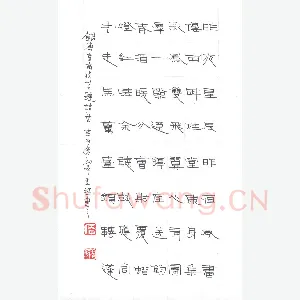 昨夜星辰昨夜風畫
樓西畔桂堂東身無
彩鳳雙飛翼心有靈
犀一點通隔座送鉤
春酒暖分曹射覆蠟
燈紅嗟余聽鼓應官
去走馬蘭臺類轉蓬
Shufawang.CN